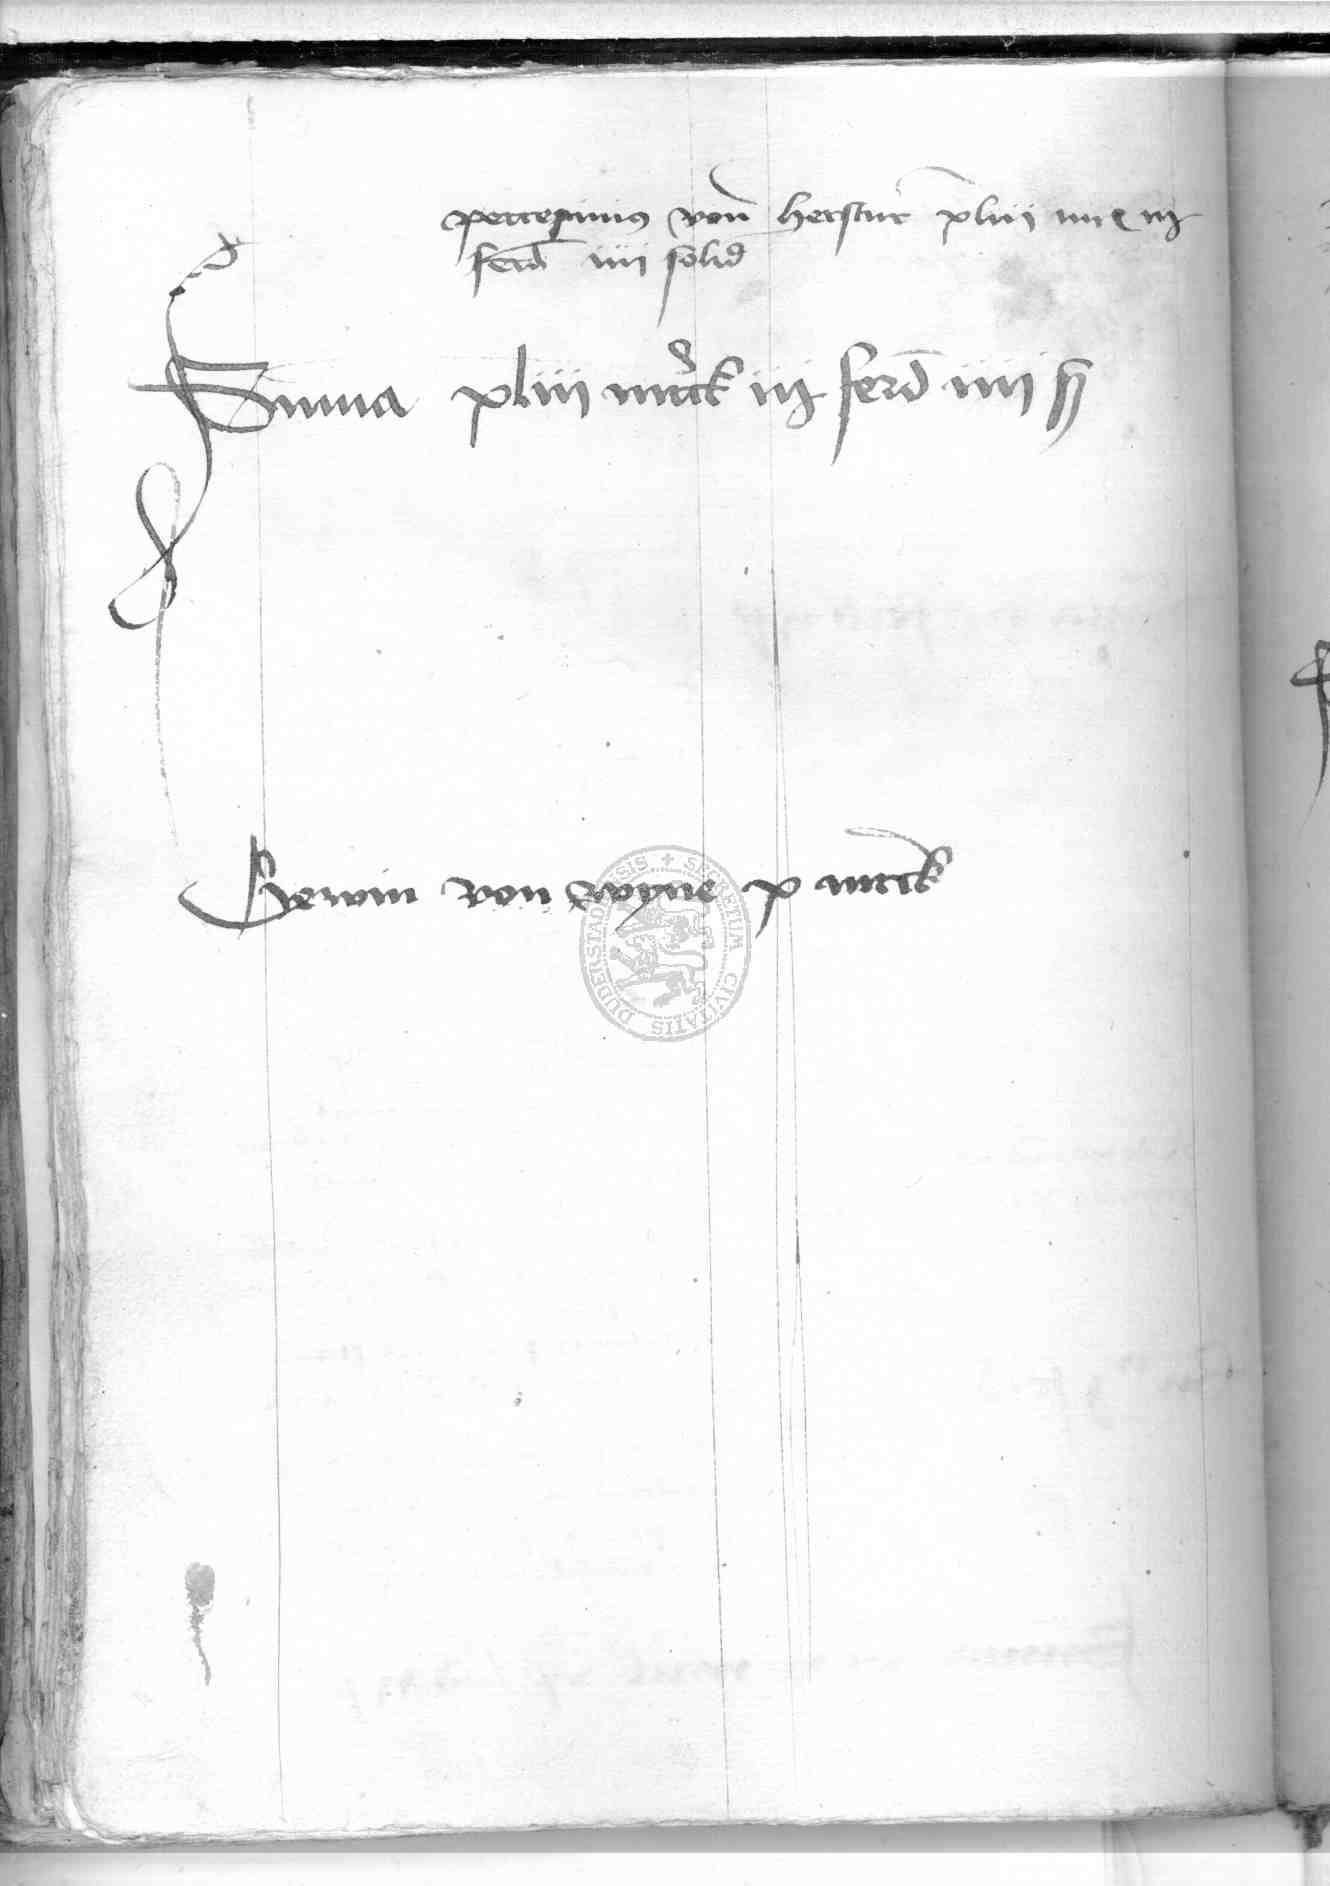 percepimus von herstur xliii mrc iij
ferd iiii solid
Summa xliii marck iij ferd iiii ß
Gerwin von wyne x marck
SECRETUM CIVITATIS DUDERSTADENSIS